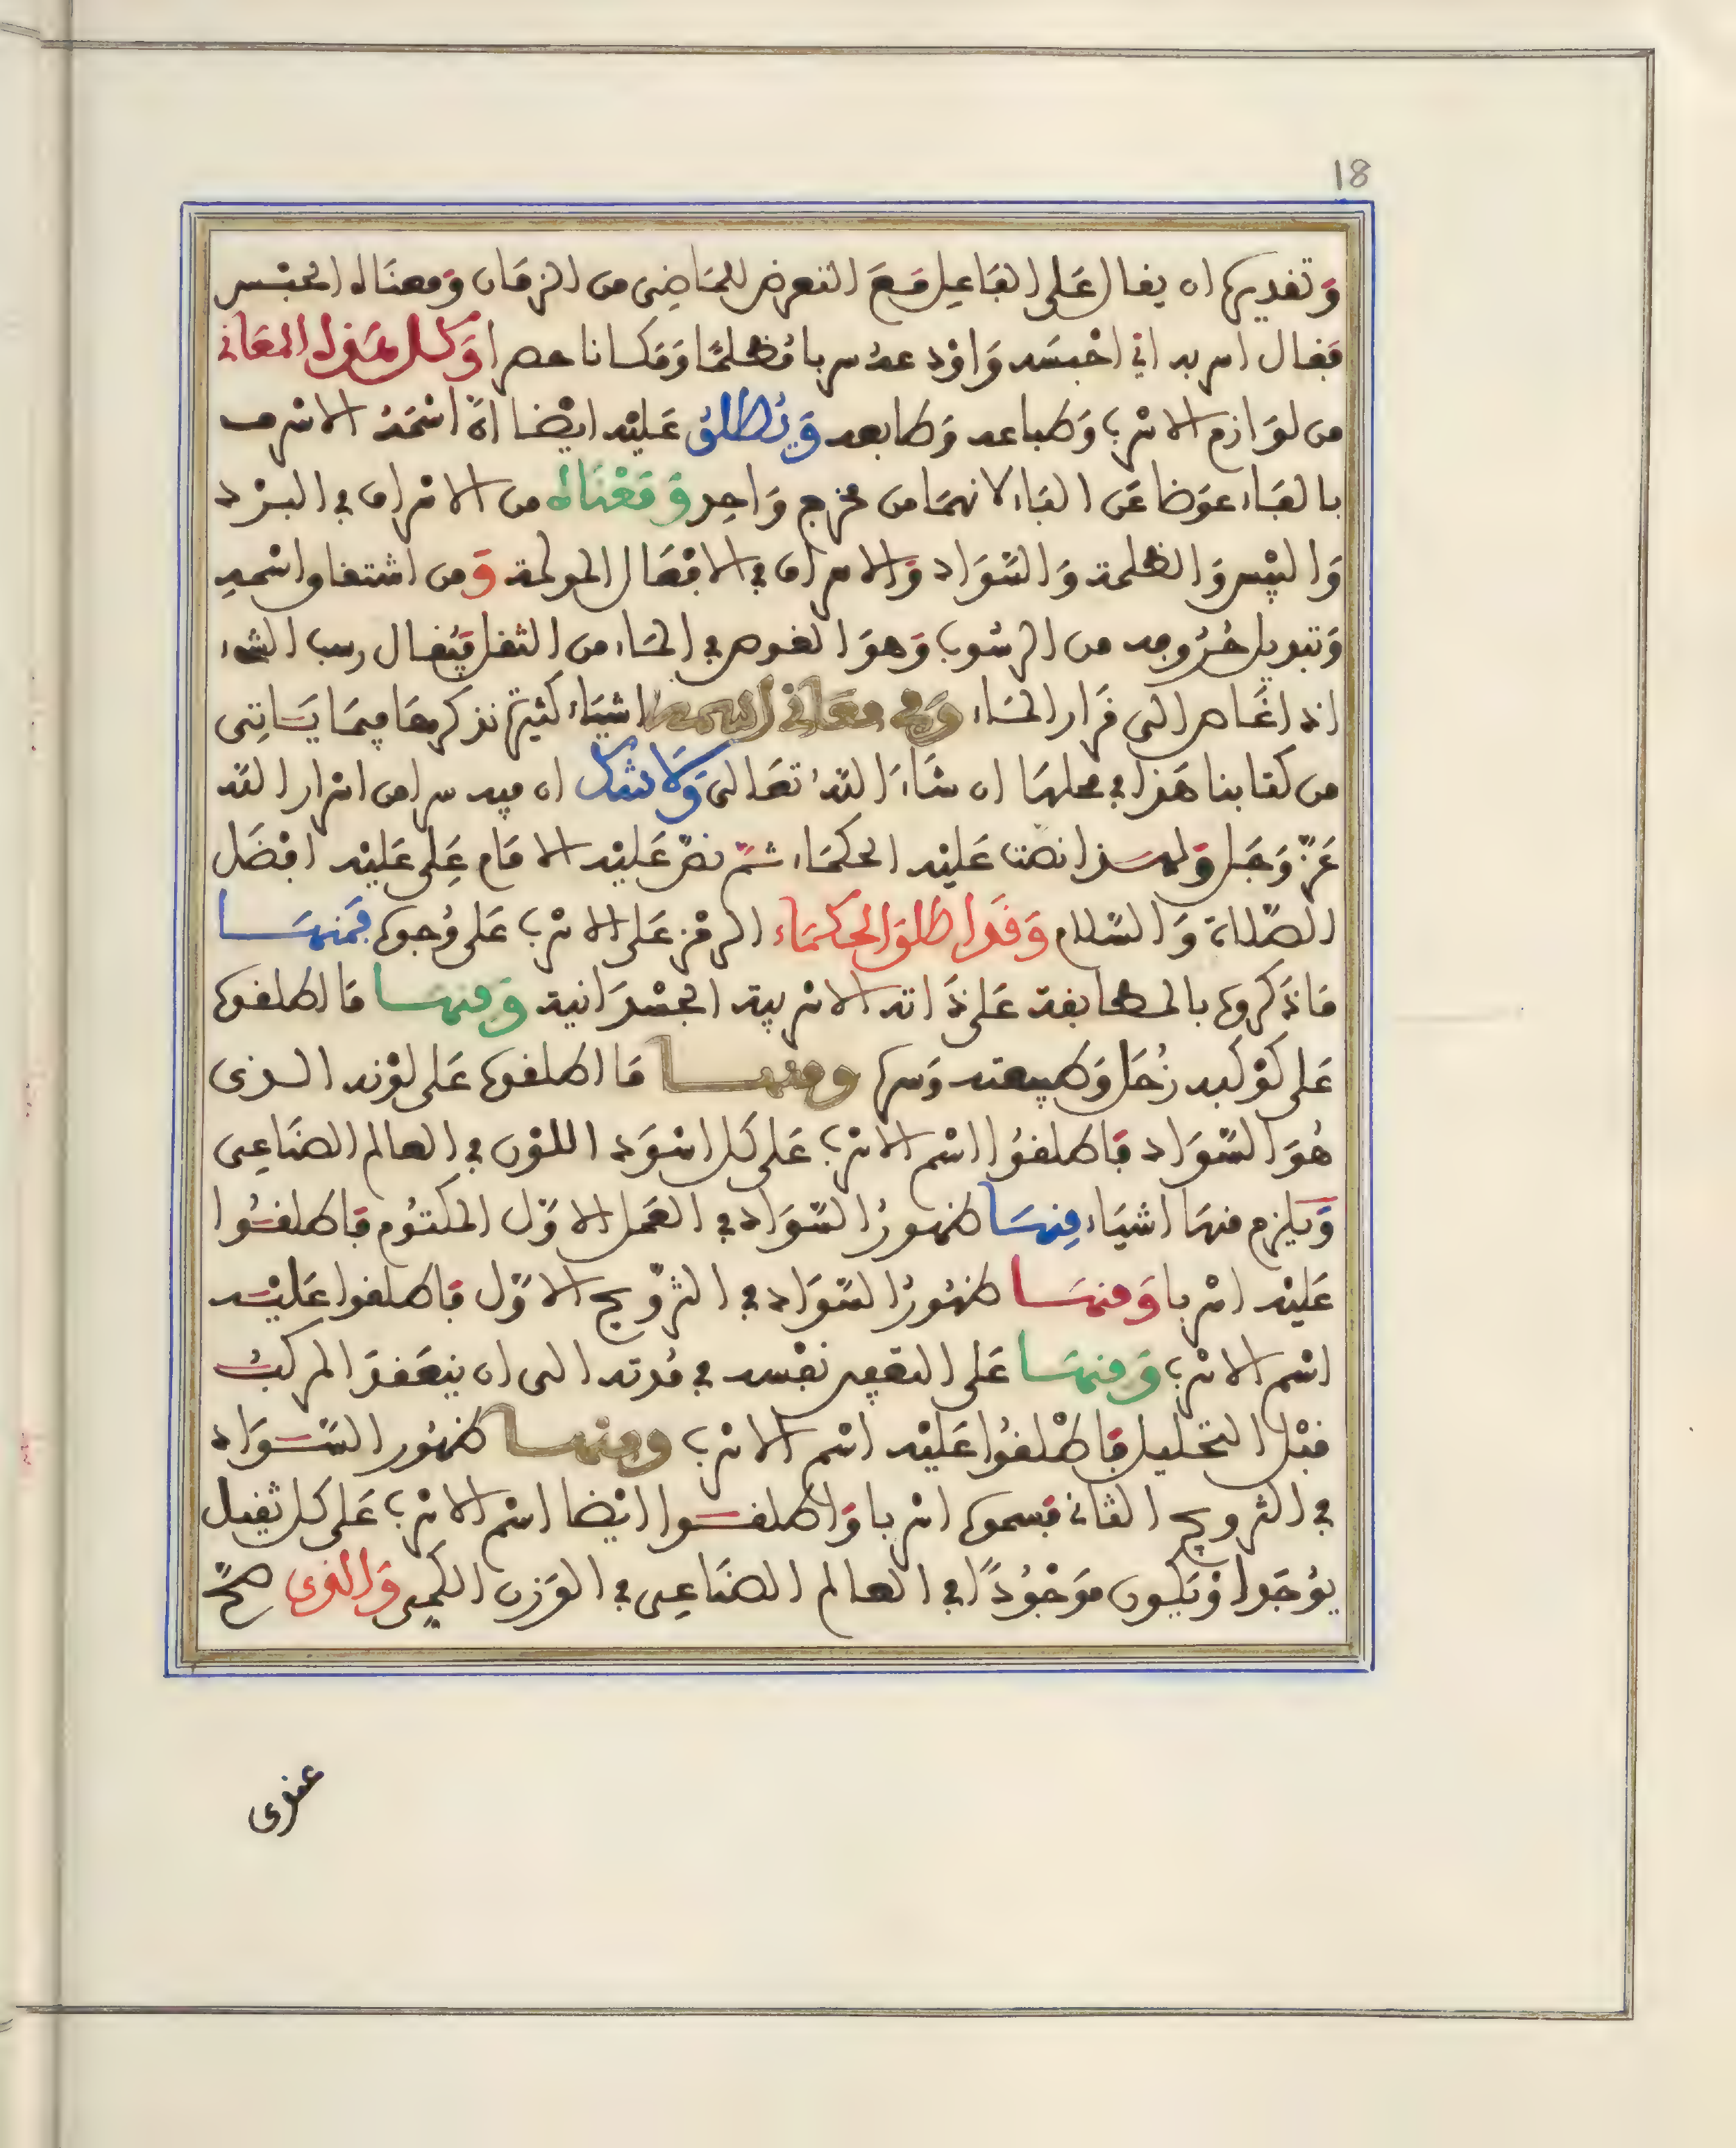 18
وتقديره ان يقال على الفاعل مع التعرض للماضى من الزمان ومعناه الحبس
فقال اسربه اي احبسه واود عه سربا مظلما ومكانا حصرا وكل هذه المعاني
من لوازم الاسرب وطباعه وطابعه ويطلق عليه ايضا ان اسمه الاسرف
بالفاء عوضا عن الباء لانهما من مخرج واحد ومعناه من الاسراف في البرد
واليبس والظلمة والسواد والاسراف في الافعال المولمة ومن اشتقاق اسمه
وتبديل حروفه من الرسوب وهو الغوص في الماء من الثقل فيقال رسب الشيء
اذا غاص الى قرار الماء وفي معاني اسمه اشياء كثيرة نذكرها فيما ياتى
من كتابنا هذا في محلها ان شاء الله تعالى ولا شك ان فيه سرا من اسرار الله
عز وجل ولهذا نصت عليه الحكماء ثم نص عليه الامام على عليه افضل
الصلاة والسلام وقد اطلق الحكماء الرمز على الاسرب على وجوه فمنها
ما ذكروه بالمطابقة على ذاته الاسربية الجسدانية ومنها ما اطلقوه
على كوكبه زحل وطبيعته وسره ومنها ما اطلقوه على لونه الذى
هو السواد فاطلقوا اسم الاسرب على كل اسود اللون في العالم الصناعى
ويلزم منها اشياء منها ظهور السواد في العمل الاول المكتوم فاطلقوا
عليه اسربا ومنها ظهور السواد في التزويج الاول فاطلقوا عليه
اسم الاسرب ومنها على التعفين نفسه في مدته الى ان ينعقد المركب
قبل التحليل فاطلقوا عليه اسم الاسرب ومنها ظهور السواد
في التزويج الثاني فسموه اسربا واطلقوا ايضا اسم الاسرب على كل ثقيل
يوجد او يكون موجودا في العالم الصناعى في الوزن الكمى والذى صح
عندى